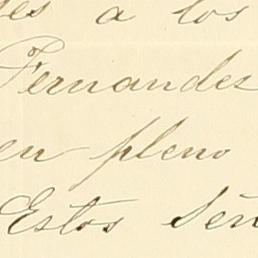 es a los
Fernandez
en pleno
Estos Señ